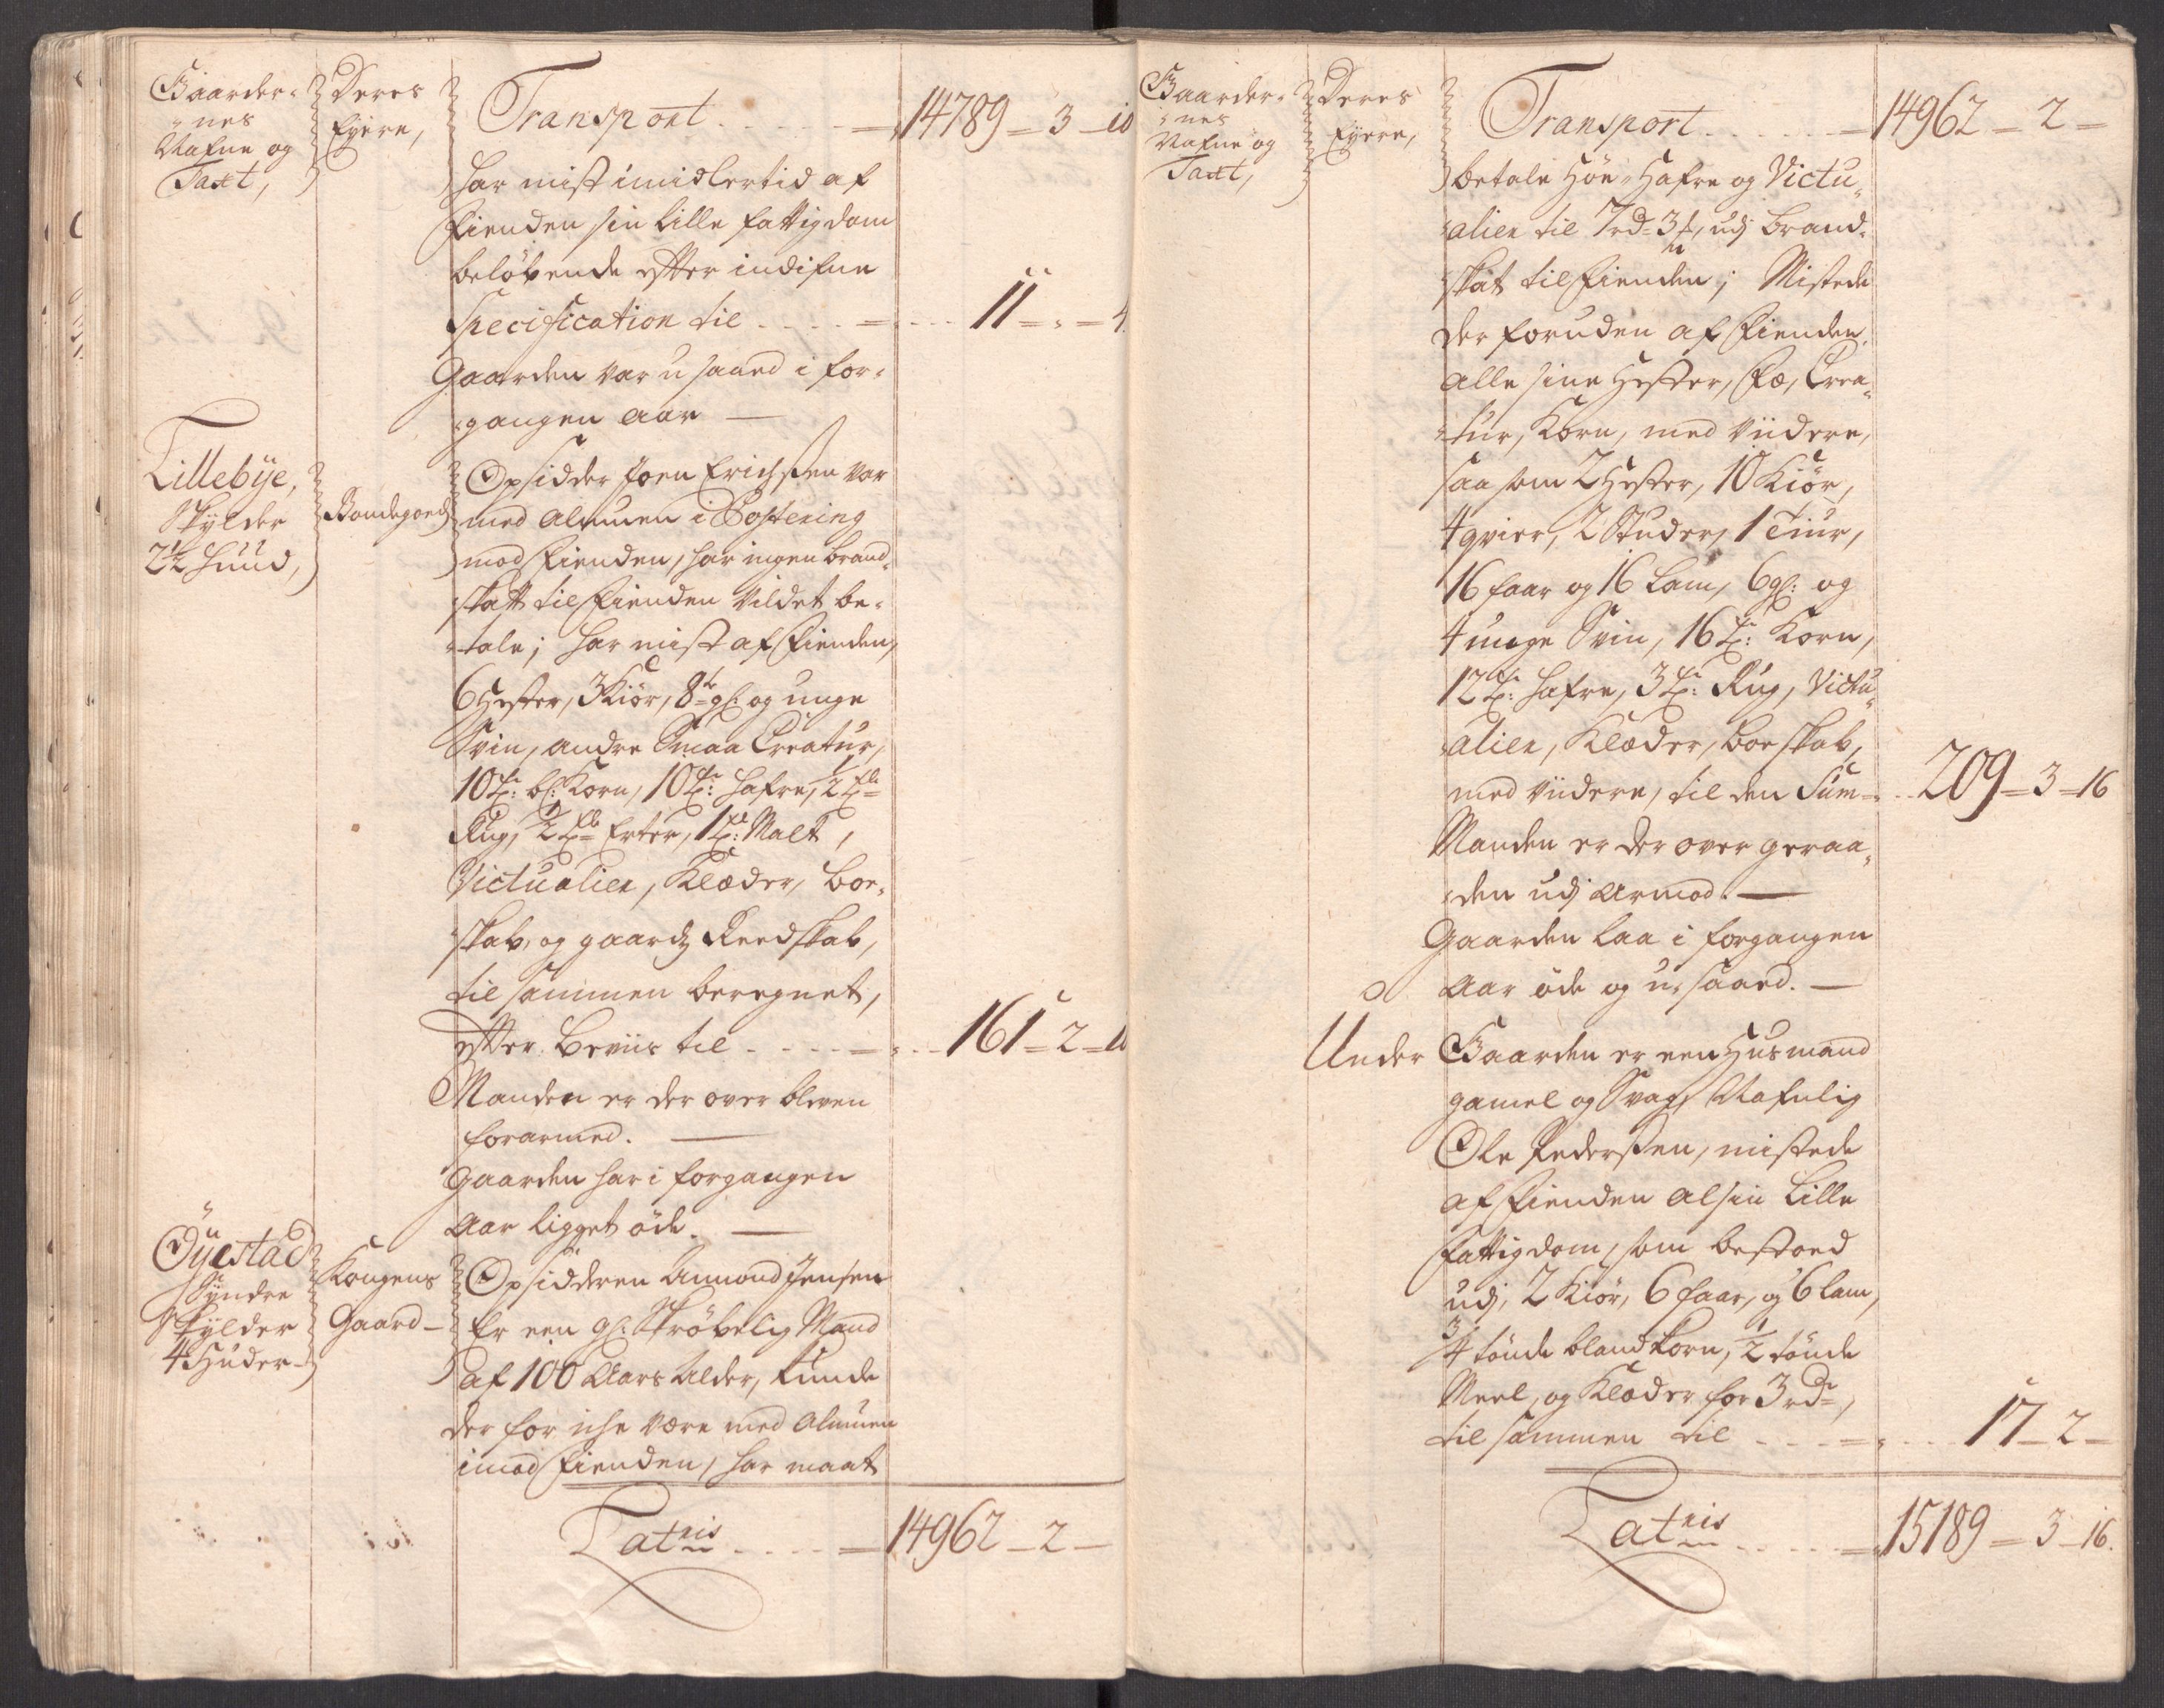 Gaarder-
nes
Nafne og
Taxt,
Deres
Eyere,
Transport - - - - = 14789 = 3 = 10
har mist imidlertid af
Fienden sin lille fattigdom
beløbende efter indifne
Specification til - - - - = 11 = " = 4
Gaarden var usaaed i for-
gangen aar —
Lillebÿe,
Skÿlder
2½ Huud,
Bondegods
Opsidder Joen Erichsen var
med Almuen i Postering
mod Fienden, har ingen brand-
skatt til Fienden vildet be-
tale; har mist af Fienden,
6 Hester, 3 Kiör, 8te gl: og unge
Svin, andre Smaa Creatur,
10 Tr: bl: Korn, 10 Tr: Hafre, ½ Tde
Rug, ½ Tde Erter, 1 Td: Malt,
Victualier, Klæder, boe-
skab, og gaards Reedskab,
til sammen beregnet,
efter Beviis til - - - - = 161 = 2 = 10
Manden er der over bleven
forarmed. —
Gaarden har i forgangen
Aar ligget øde. —
Öÿestad
Sÿndre
Skÿlder
4 Huder
Kongens
Gaard —
Opsidderen Amund Jensen
Er een gl: Skröbelig Mand
af 100 Aars Alder, kunde
der for iche være med Almuen
imod Fienden, har maat
Lateris - - - - = 14962 = 2 —
Gaarder-
nes
Nafne og
Taxt,
Deres
Eyere,
Transport - - - - = 14962 = 2 =
betale Höe, Hafre og Victu-
alier til 7 rd= 3 ƒ, udj Brand-
skat til Fienden; Mistede
der foruden af Fienden
alle sine Hester, Fæ, Crea-
tur, Korn, med viidere,
saa som 2 Hester, 10 Kiör,
4 qvier, 2 Studer, 1 Tiur,
16 faar og 16 Lam, 6 gl: og
4 unge Svin, 16 Tr: Korn,
12 Tr: Hafre, 3 Tr: Rug, Victu-
alier, Klæder, boeskab,
med viidere, til den Sum = 209 = 3 = 16
Manden er der over geraa-
den udj Armod. —
Gaarden laa i forgangen
Aar öde og u-saaed. —
Under Gaarden er een Husmand
gamel og Svag Nafnlig
Ole Pedersen, mistede
af Fienden al sin Lille
Fattigdom, som bestoed
udj, 2 Kiör, 6 faar, og 6 lam,
¾ tönde blandkorn, ½ tönde
Meel, og Klæder for 3 rdr,
til sammen til - - - = 17 = 2 —
Lateris - - - - = 15189 = 3 = 16.